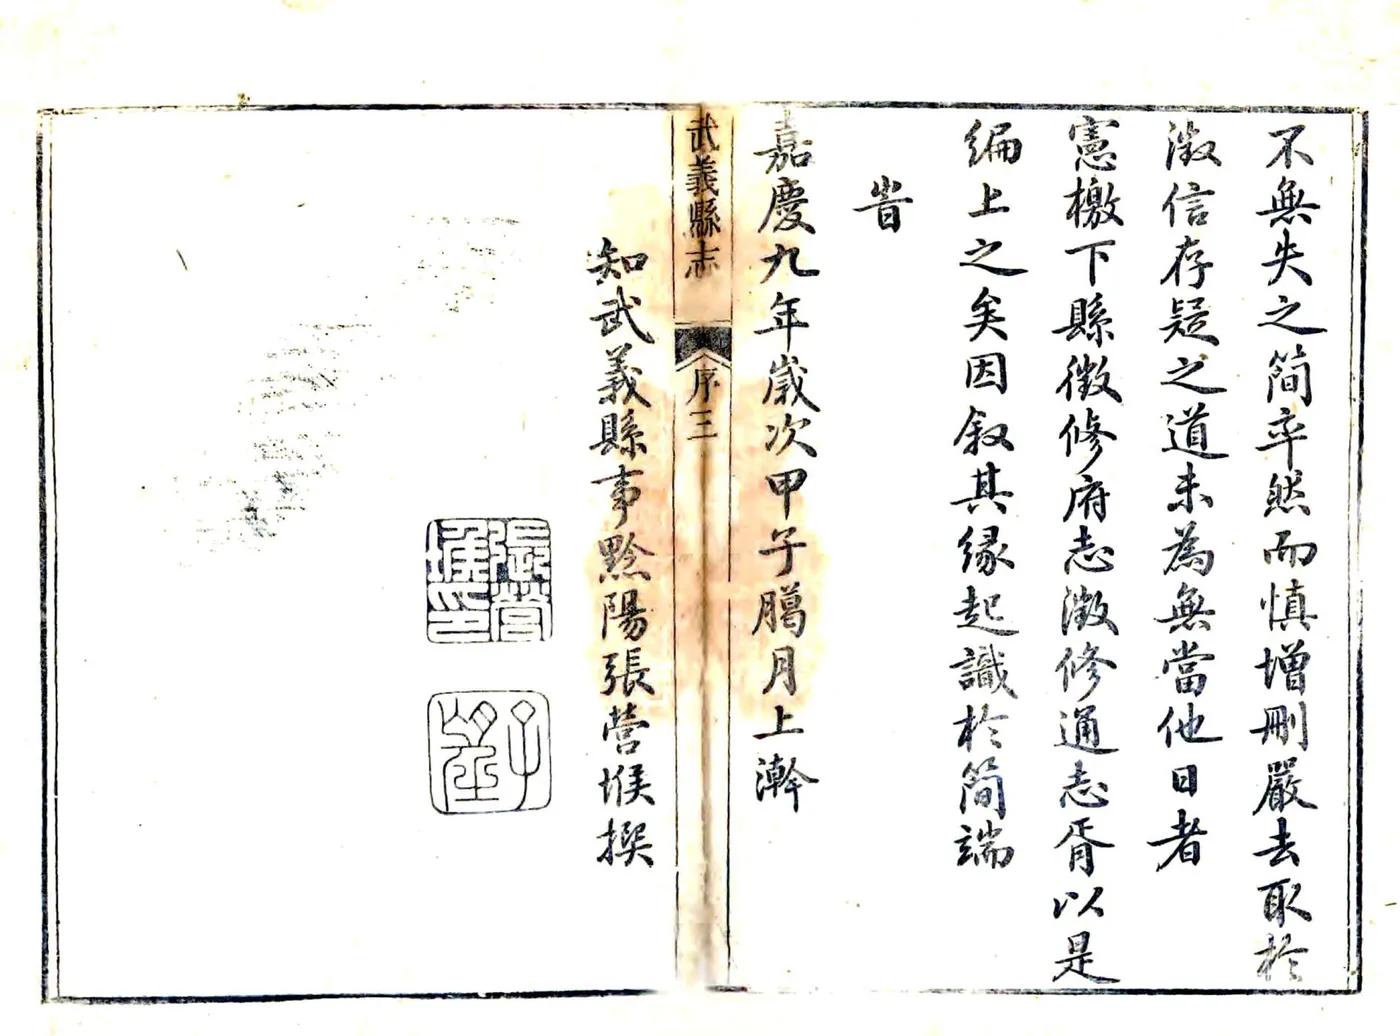 不無失之簡卒然而慎增刪嚴去取於
徵信存疑之道未為無當他日者
憲檄下縣徵修府志徵修通志胥以是
編上之矣因敘其緣起識於簡端
旹
嘉慶九年歲次甲子臈月上澣
武義縣志
序三
知武義縣事黔陽張營堠撰
張營
堠印
子